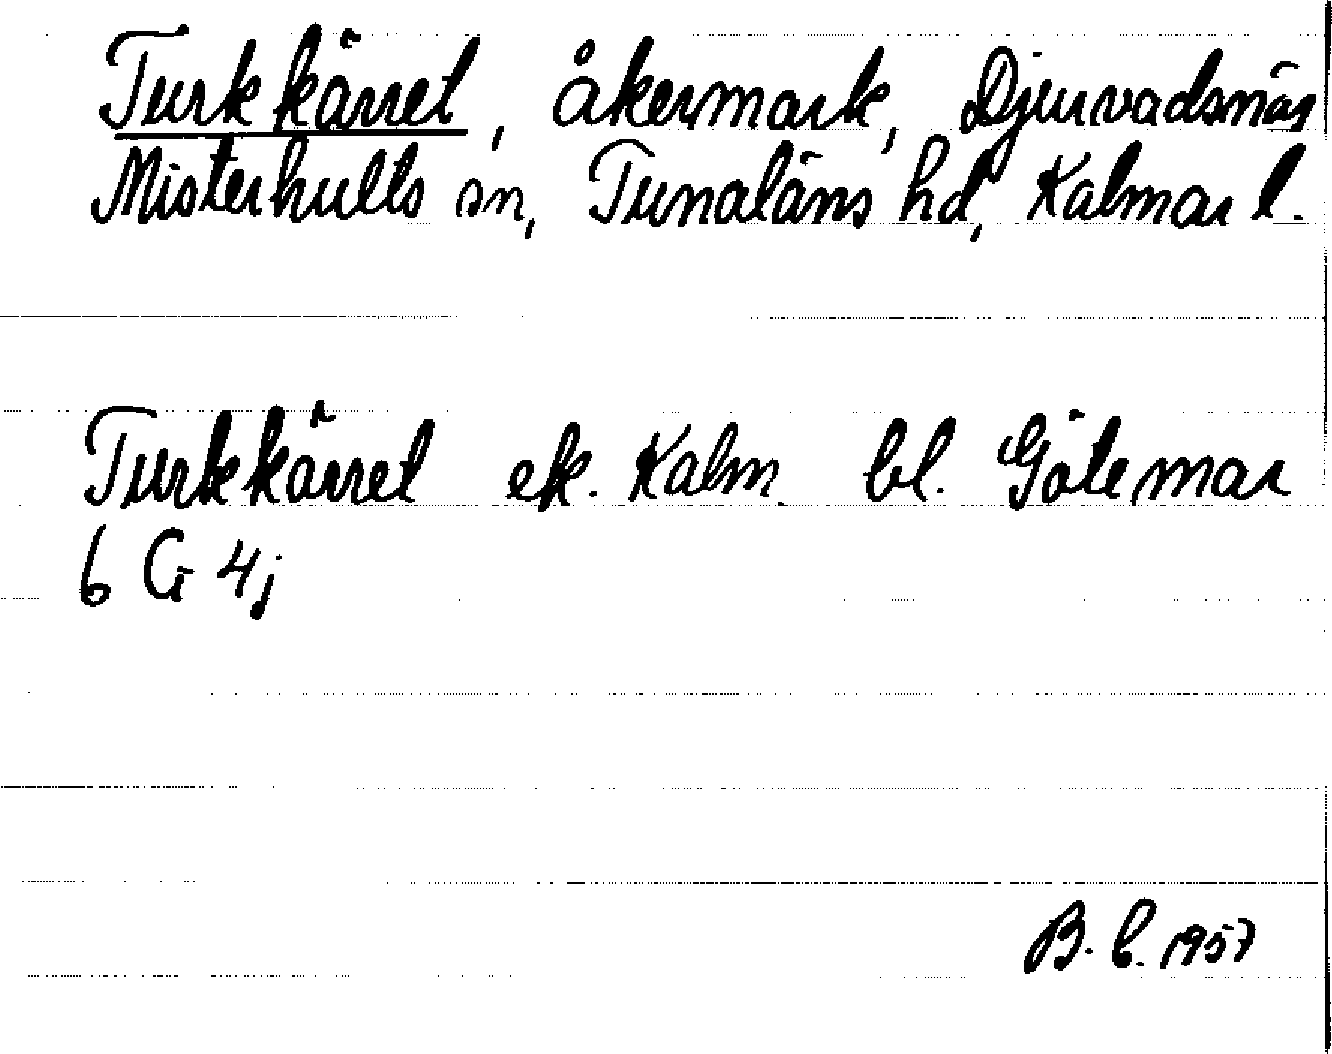 Turkkärret, åkermark, Djurvadsnäs
Misterhults sn, Tunaläns hd, Kalmar l.
Turkkärret ek. Kalm. bl. Götemar
6 G 4j
B. L. 1957